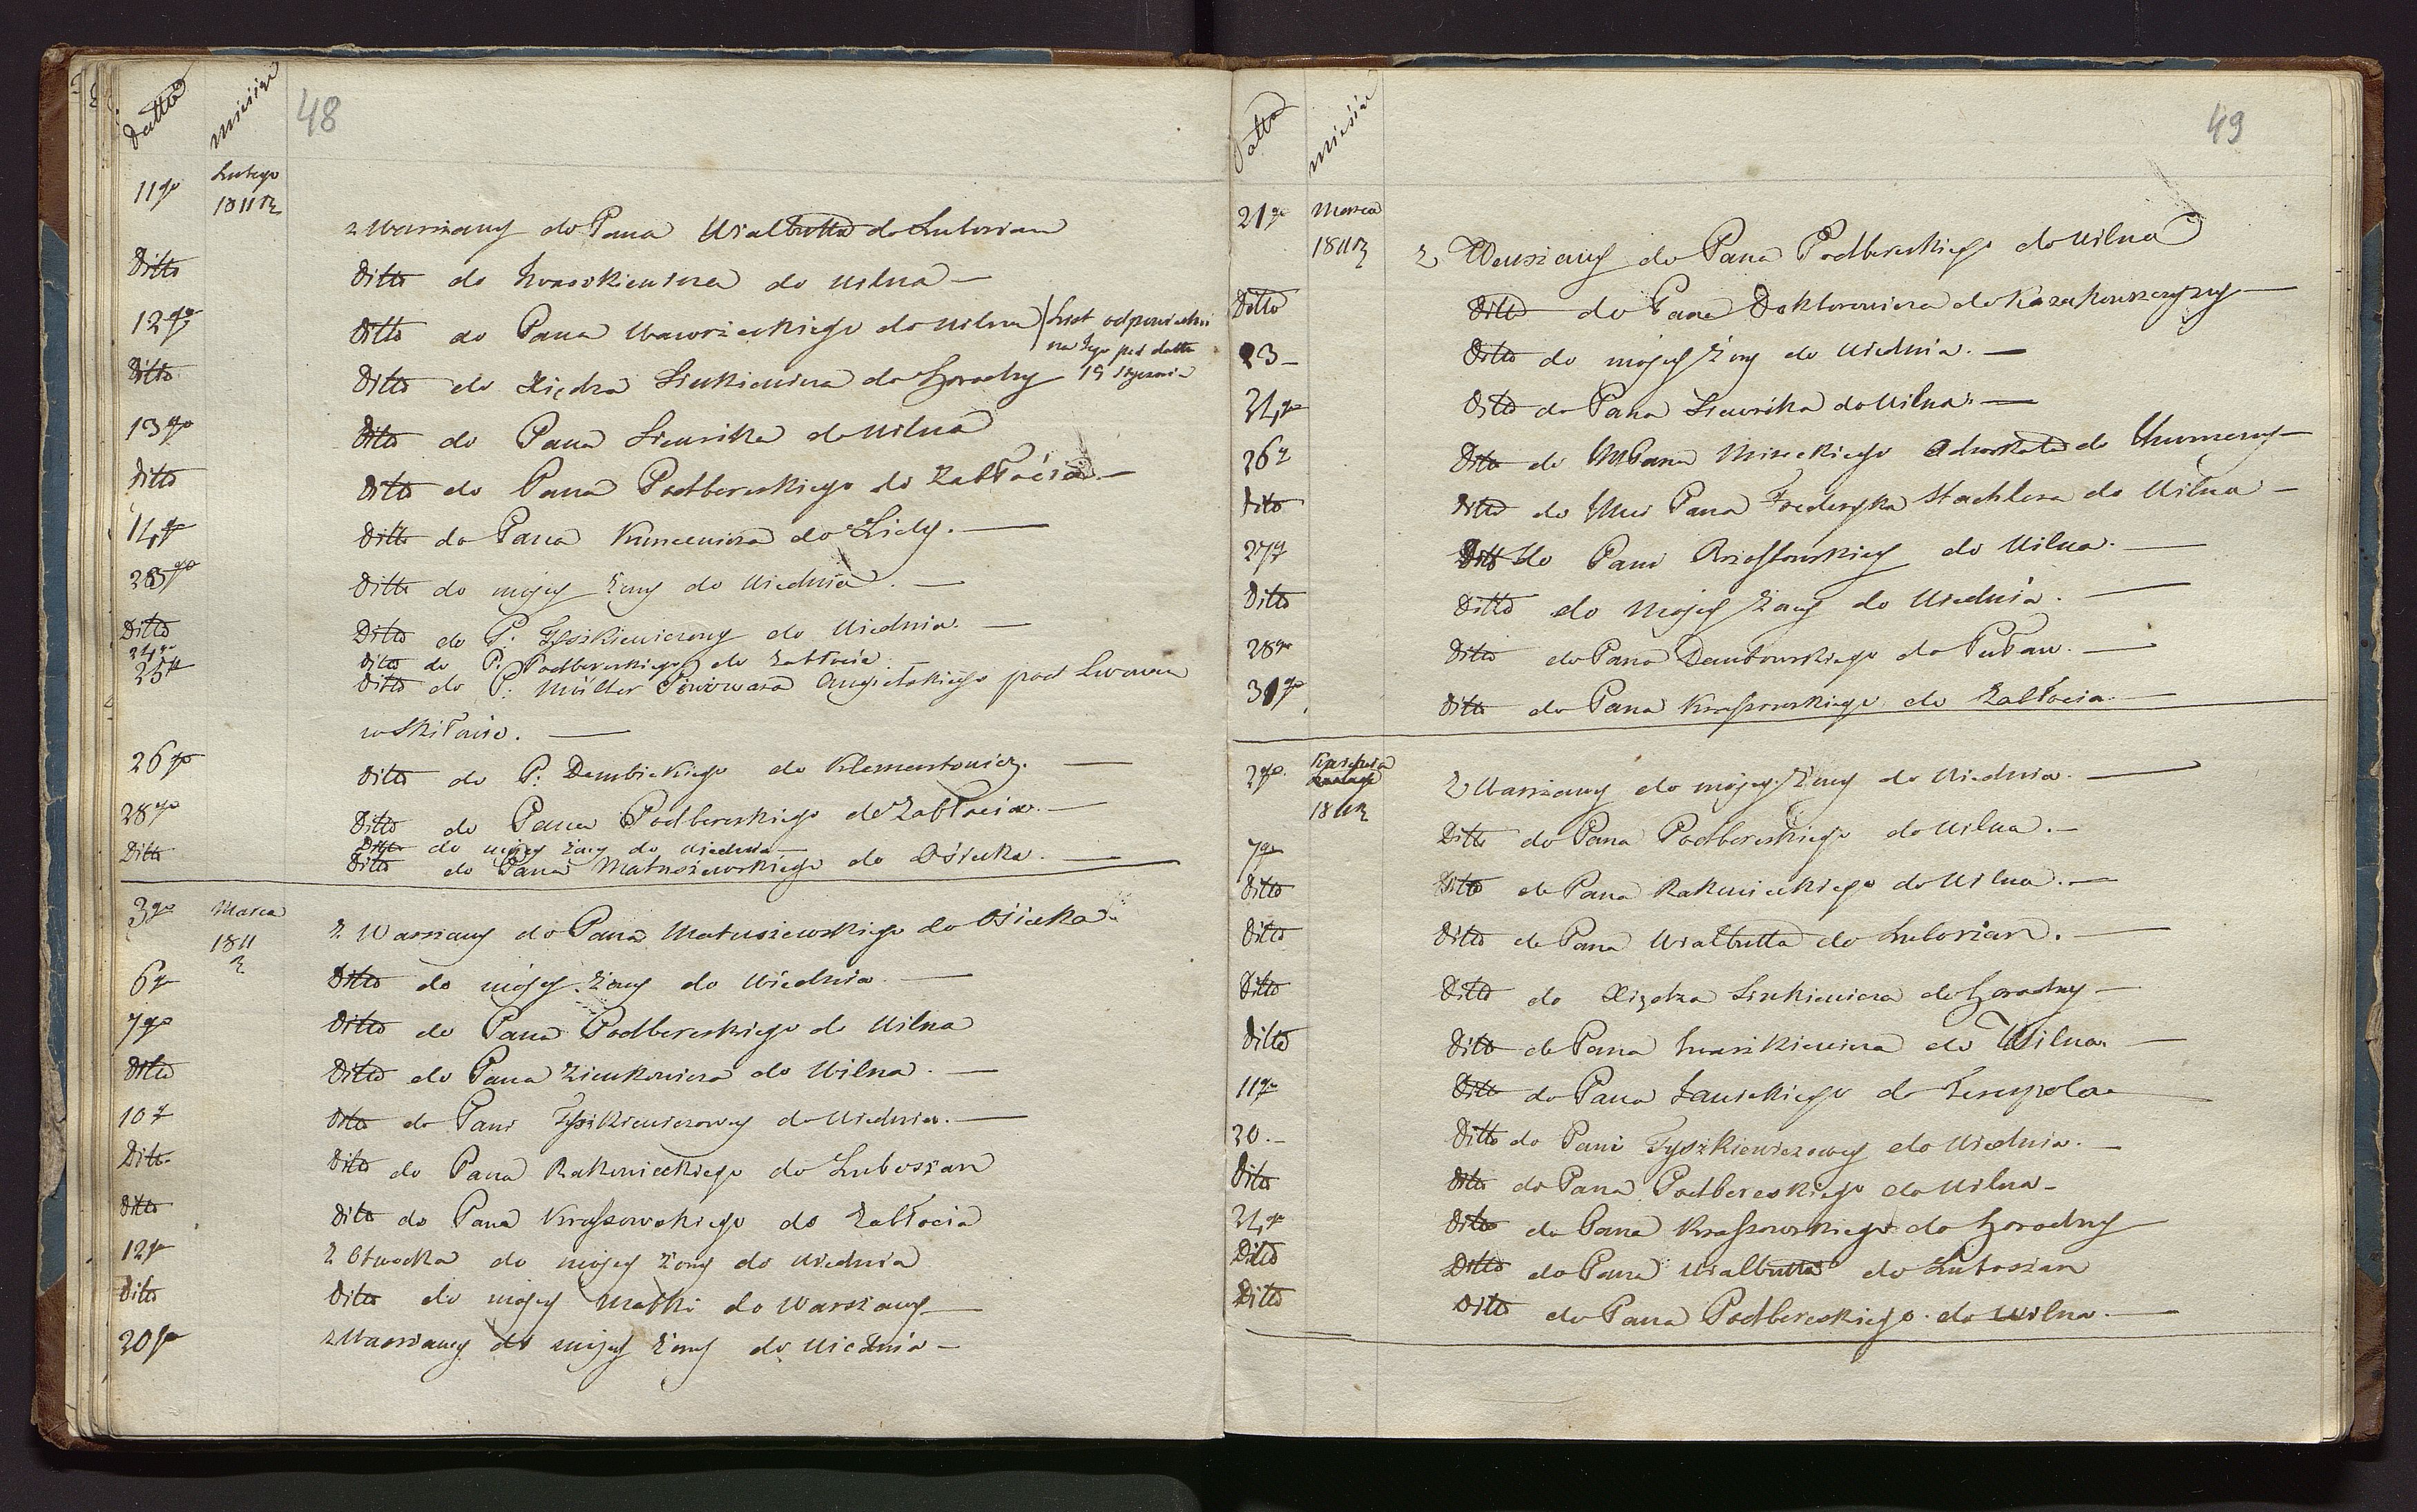 48
Datta miesiąc
11go Lutego z Warszawy do Pana Wialbutta do Lubosian
1811 R
Ditto Ditto do Iwaszkiewicza do Wilna —
12go Ditto do Pana Wawrzeckiego do Wilna / List odpowiedni
na Jego pod datta
19 Stycznia
Ditto Ditto do Xiędza Sinkiewicza do Horodny
13go Ditto do Pana Siewrika do Wilna
Ditto Ditto do Pana Podbereskiego do Zabłocia —
14go Ditto do Pana Kuncewicza do Lidy. —
23go Ditto do mojey Żony do Wiednia. —
Ditto Ditto do P: Tyszkiewiczowy do Wiednia. —
24go Ditto do P: Podbereskiego do Zabłocia. —
25go Ditto do P: Müller Piwowara Angielskiego pod Lwowem
w Skiłowie. —
26go Ditto do P: Dembickiego do Klementowicz. —
28go Ditto do Pana Podbereskiego do Zabłocia. —
Ditto do mojey Żony do Wiednia —
Ditto Ditto do Pana Matuszewskiego do Osiecka. —
3go Marca Z Warszawy do Pana Matuszewskiego do Osiecka.
1811
R
6go Ditto do mojey Żony do Wiednia. —
7go Ditto do Pana Podbereskiego do Wilna
Ditto Ditto do Pana Zienkowicza do Wilna. —
10go Ditto do Pani Tyszkiewiczowey do Wiednia. —
Ditto Ditto do Pana Rakowieckiego do Lubosian
Ditto Ditto do Pana Kraszowskiego do Zabłocia
12go Z Otwocka do mojey Żony do Wiednia
Ditto Ditto do mojey Matki do Warszawy —
20go z Warszawy do mojey Żony do Wiednia —
49
Datta miesiąc
21go Marca
1811 R Z Warszawy do Pana Podbereskiego do Wilna
Ditto Ditto do Pana Doktorowicza do Kozakowszczyzny —
23 — Ditto do mojey Żony do Wiednia. —
24go Ditto do Pana Siewrika do Wilna. —
26go Ditto do WPana Mireckiego Adwokata do
Ditto Ditto do Pana Frederyka Stachlera do Wilna —
27go Ditto do Pani Rzeszowskiey do Wilna. —
Ditto Ditto do Mojey Żony do Wiednia. —
28go Ditto do Pana Dembowskiego do Puław. —
31go Ditto do Pana Kraszowskiego do Zabłocia. —
2go Kwietnia Z Warszawy do mojey Żony do Wiednia. —
1811 R
7go Ditto do Pana Podbereskiego do Wilna. —
Ditto Ditto do Pana Rakowieckiego do Wilna. —
Ditto Ditto do Pana Wialbutta do Lubosian. —
Ditto Ditto do Xiędza Sinkiewicza do Horodny —
Ditto Ditto do Pana Iwaszkiewicza do Wilna. —
11go Ditto do Pana Janickiego do Terespola
20. — Ditto do Pani Tyszkiewiczowey do Wiednia. —
Ditto Ditto do Pana Podbereskiego do Wilna —
24go Ditto do Pana Kraszowskiego do Horodny
Ditto Ditto do Pana Wialbutta do Lubosian
Ditto Ditto do Pana Podbereskiego do Wilna. —